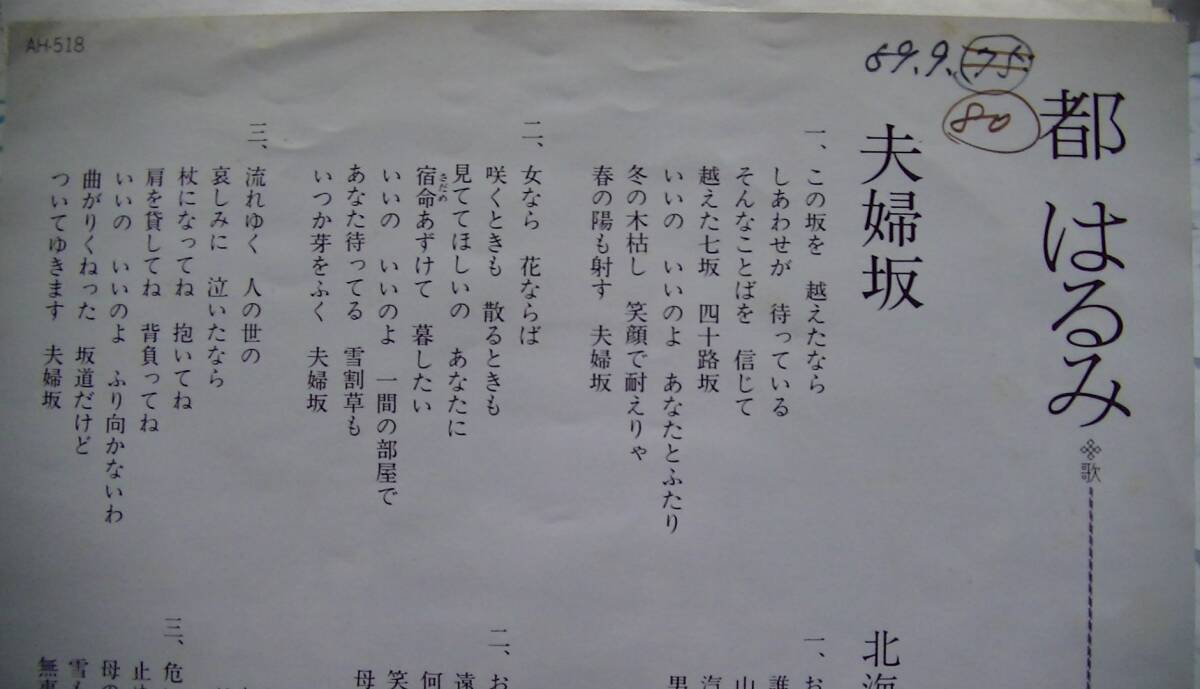 AH-518
59.9.75
80
都 はるみ
歌
夫婦坂
一、この坂を 越えたなら
しあわせが 待っている
そんなことばを 信じて
越えた七坂 四十路坂
いいの いいのよ あなたとふたり
冬の木枯し 笑顔で耐えりゃ
春の陽も射す 夫婦坂
二、女なら 花ならば
咲くときも 散るときも
見ててほしいの あなたに
宿命あずけて 暮したい
さだめ
いいの いいのよ 一間の部屋で
あなた待ってる 雪割草も
いつか芽をふく 夫婦坂
三、流れゆく 人の世の
哀しみに 泣いたなら
杖になってね 抱いてね
肩を貸してね 背負ってね
いいの いいのよ ふり向かないわ
曲がりくねった 坂道だけど
ついてゆきます 夫婦坂
北海
一、お
誰
山
汽
男
二、お
遠
何
笑
母
三、危
止め
母の
雪も
無事